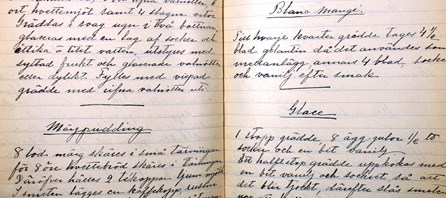 ort, hvetemjöl samt 2 skopor
Gräddas i svag ugn i två bottnar
glaseras med en lag af socker och
ättika à litet vatten, utsirges med
syltad frukt och glaserade valnötter
eller dylikt. Fylles med vispad
grädde med rifna valnötter uti.
Märgpudding
8 lod märg skäres i små tärningar
för 8 öre hvetebröd skäres i tärningar
Därefter 2 tekoppar ljum mjölk
I smeten lägges en kaffekopp russin
Blanc mangé.
Till hvarje kvarter grädde tages 4 1/2
blad gelantin då det användes som
mellanlägg annars 4 blad, socker
och vanilj efter smak.
Glace
1 stopp grädde 8 ägg gulor 1/2 ℔
socker och en bit vanilj
Ett halfstop grädde uppkokas med
en bit vanilj och sockert så att
det blir tjockt, därefter slås